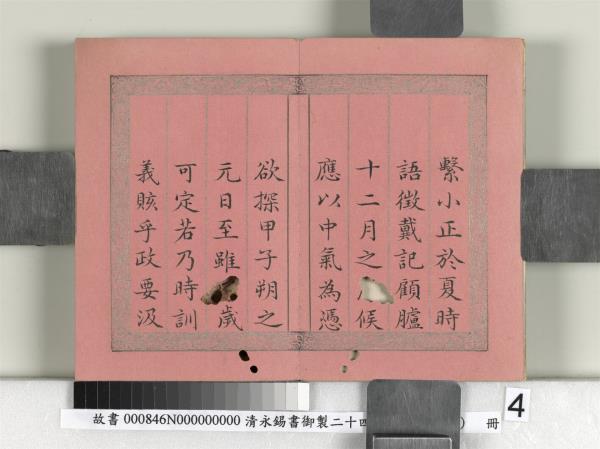 繫小正於夏時
語徵戴記顧臚
十二月之候
應以中氣為憑
欲探甲子朔之
元日至雖歲
可定若乃時訓
義賅乎政要汲
故書 000846N000000000 清永錫書御製二十四 冊
4